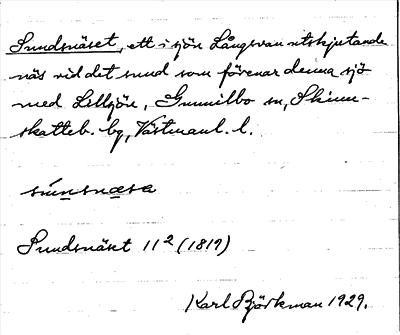 Sundsnäset, ett i sjön Långsvan utskjutande
näs vid det sund som förenar denna sjö
med Lillsjön, Gunnilbo sn, Skinn-
skatteb. bg, Västmanl. l.
súnsnæsa
Sundsnäset 11² (1819)
Karl Björkman 1929.